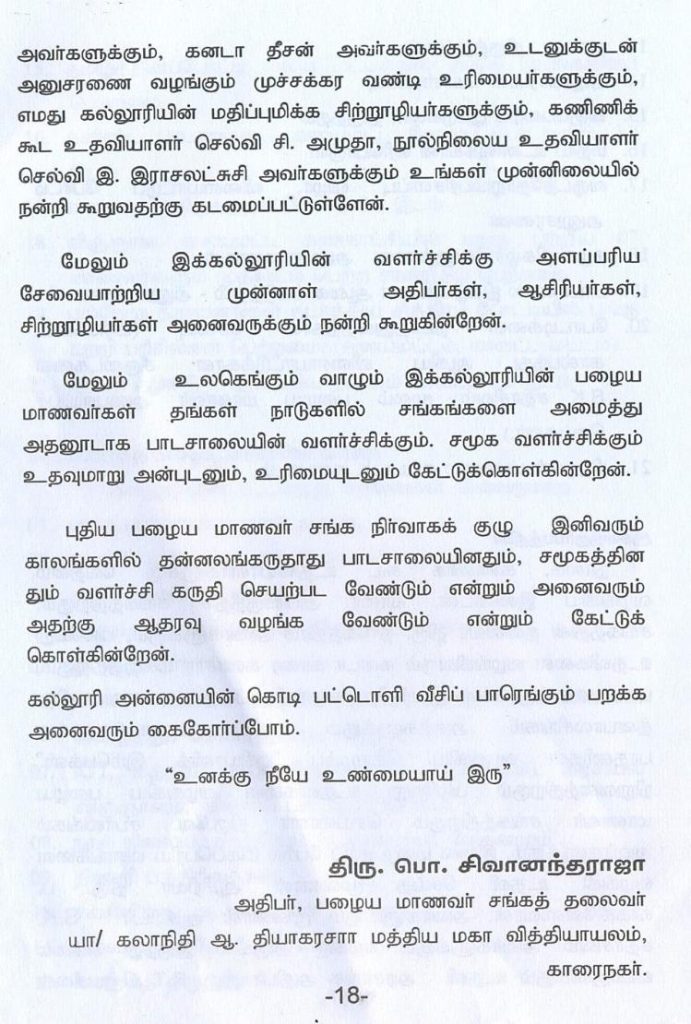 அவர்களுக்கும், கனடா தீசன் அவர்களுக்கும், உடனுக்குடன்
அனுசரணை வழங்கும் முச்சக்கர வண்டி உரிமையர்களுக்கும்,
எமது கல்லூரியின் மதிப்புமிக்க சிற்றூழியர்களுக்கும், கணிணிக்
கூட உதவியாளர் செல்வி சி. அமுதா, நூல்நிலைய உதவியாளர்
செல்வி இ. இராசலட்சுசி அவர்களுக்கும் உங்கள் முன்னிலையில்
நன்றி கூறுவதற்கு கடமைப்பட்டுள்ளேன்.
மேலும் இக்கல்லூரியின் வளர்ச்சிக்கு அளப்பரிய
சேவையாற்றிய முன்னாள் அதிபர்கள், ஆசிரியர்கள்,
சிற்றூழியர்கள் அனைவருக்கும் நன்றி கூறுகின்றேன்.
மேலும் உலகெங்கும் வாழும் இக்கல்லூரியின் பழைய
மாணவர்கள் தங்கள் நாடுகளில் சங்கங்களை அமைத்து
அதனூடாக பாடசாலையின் வளர்ச்சிக்கும். சமூக வளர்ச்சிக்கும்
உதவுமாறு அன்புடனும், உரிமையுடனும் கேட்டுக்கொள்கின்றேன்.
புதிய பழைய மாணவர் சங்க நிர்வாகக் குழு இனிவரும்
காலங்களில் தன்னலங்கருதாது பாடசாலையினதும், சமூகத்தின
தும் வளர்ச்சி கருதி செயற்பட வேண்டும் என்றும் அனைவரும்
அதற்கு ஆதரவு வழங்க வேண்டும் என்றும் கேட்டுக்
கொள்கின்றேன்.
கல்லூரி அன்னையின் கொடி பட்டொளி வீசிப் பாரெங்கும் பறக்க
அனைவரும் கைகோர்ப்போம்.
“உனக்கு நீயே உண்மையாய் இரு”
திரு. பொ. சிவானந்தராஜா
அதிபர், பழைய மாணவர் சங்கத் தலைவர்
யா/ கலாநிதி ஆ. தியாகராசா மத்திய மகா வித்தியாயலம்,
காரைநகர்.
-18-